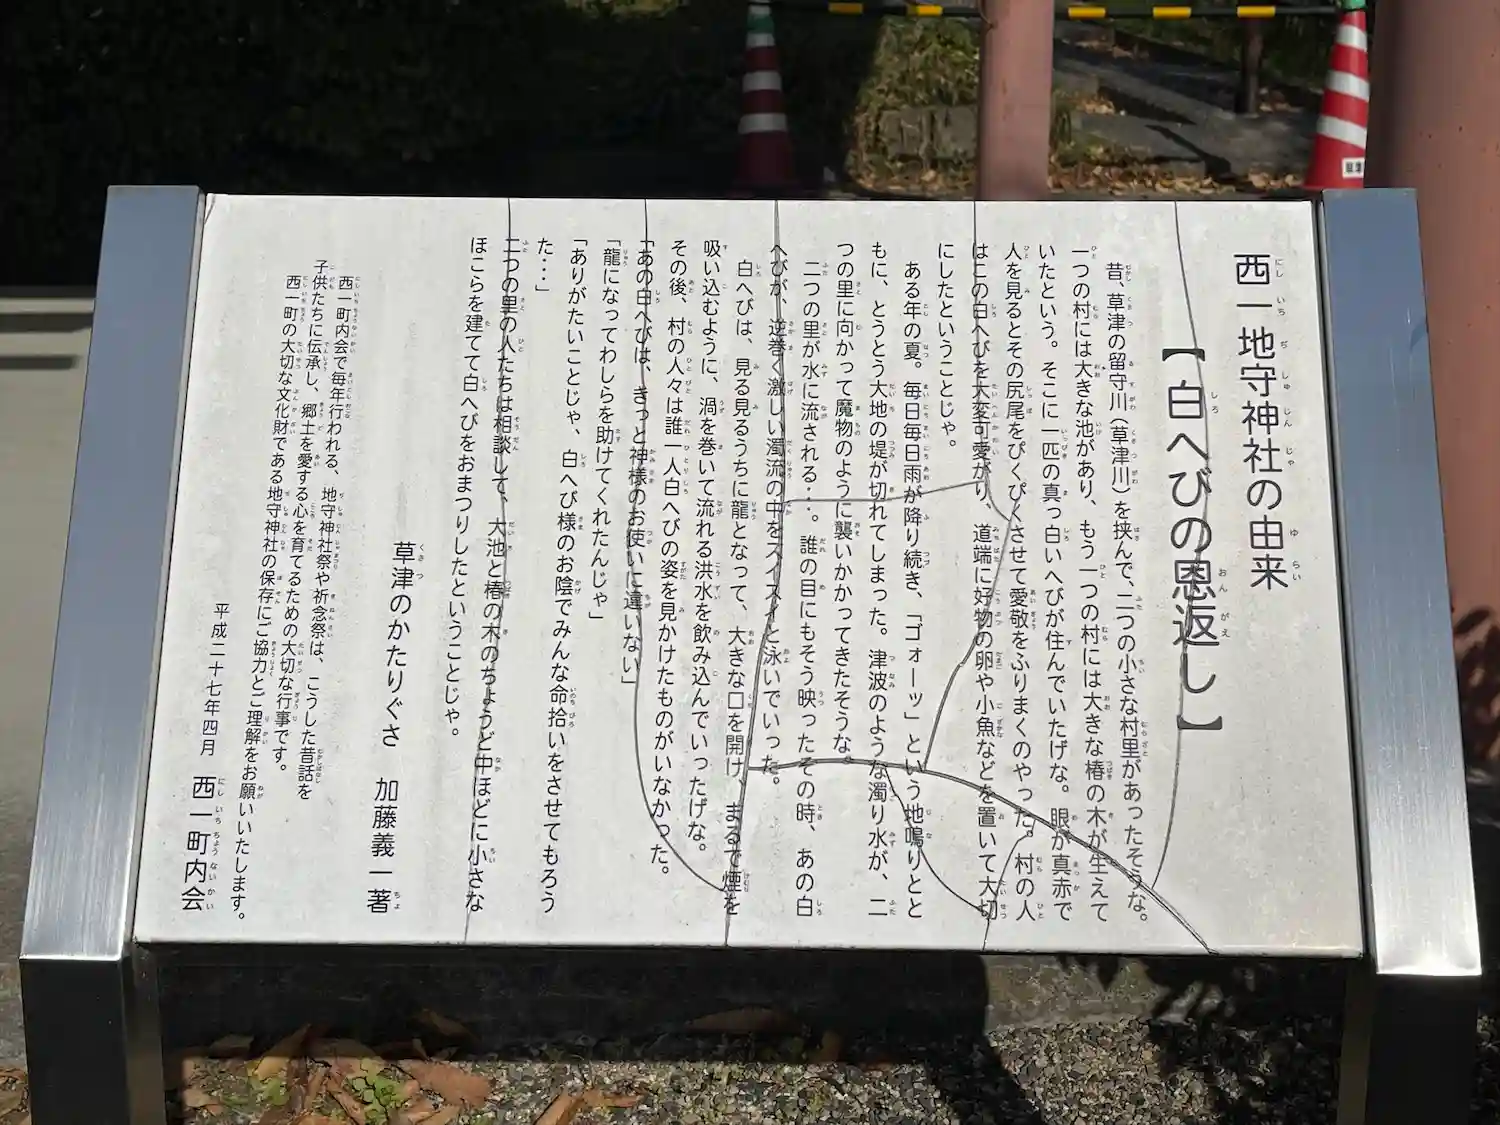 西一地守神社の由来
【白へびの恩返し】
昔、草津の留守川(草津川)を挟んで、二つの小さな村里があったそうな。
一つの村には大きな池があり、もう一つの村には大きな椿の木が生えて
いたという。そこに一匹の真っ白いへびが住んでいたげな。眼が真赤で
人を見るとその尻尾をぴくぴくさせて愛敬をふりまくのやった。村の人
はこの白へびを大変可愛がり、道端に好物の卵や小魚などを置いて大切
にしたということじゃ。
ある年の夏。毎日毎日雨が降り続き、「ゴォーッ」という地鳴りとと
もに、とうとう大地の堤が切れてしまった。津波のような濁り水が、二
つの里に向かって魔物のように襲いかかってきたそうな。
二つの里が水に流される・・・。誰の目にもそう映ったその時、あの白
へびが、逆巻く激しい濁流の中をスイスイと泳いでいった。
白へびは、見る見るうちに龍となって、大きな口を開け、まるで煙を
吸い込むように、渦を巻いて流れる洪水を飲み込んでいったげな。
その後、村の人々は誰一人白へびの姿を見かけたものがいなかった。
「あの白へびは、きっと神様のお使いに違いない」
「龍になってわしらを助けてくれたんじゃ」
「ありがたいことじゃ、白へび様のお陰でみんな命拾いをさせてもろう
た・・・」
二つの里の人たちは相談して、大池と椿の木のちょうど中ほどに小さな
ほこらを建てて白へびをおまつりしたということじゃ。
草津のかたりぐさ 加藤義一著
西一町内会で毎年行われる、地守神社祭や祈念祭は、こうした昔話を
子供たちに伝承し、郷土を愛する心を育てるための大切な行事です。
西一町の大切な文化財である地守神社の保存にご協力とご理解をお願いいたします。
平成二十七年四月 西一町内会